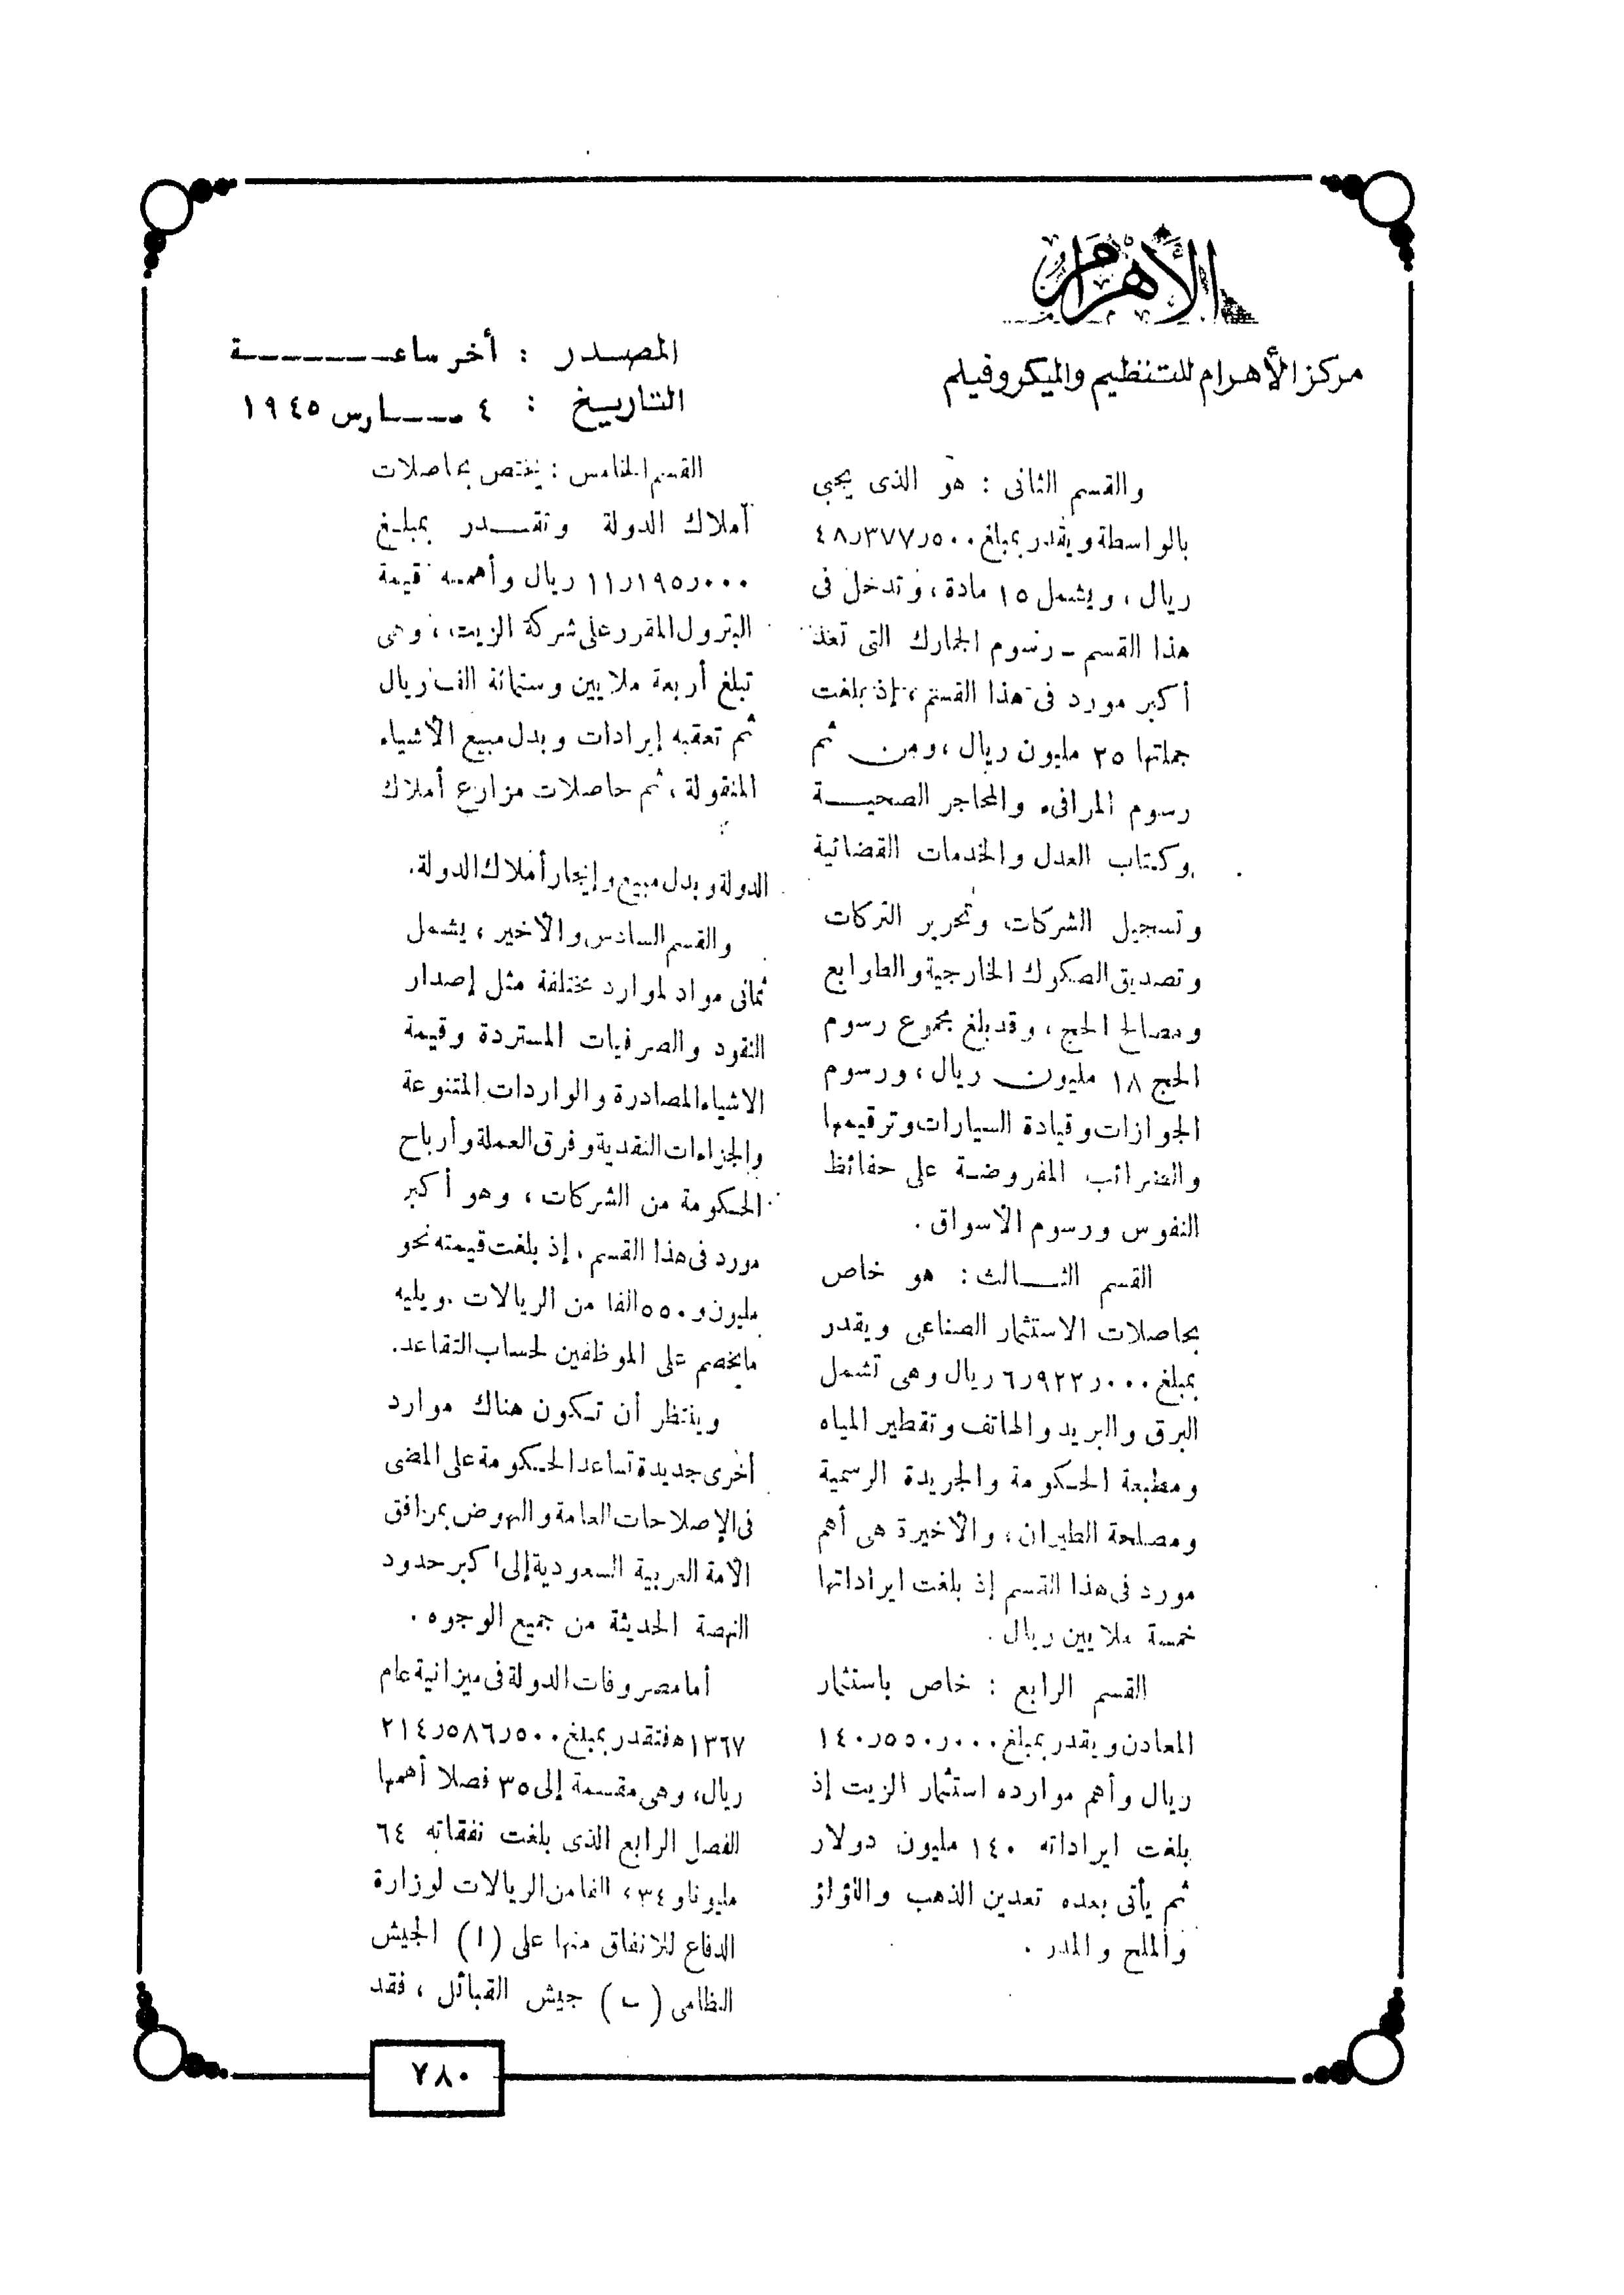 الأهرام
مركز الأهرام للتنظيم والميكروفيلم
المصدر : أخر ساعة
التاريخ : ٤ مارس ١٩٤٥
والقسم الثانى : هو الذى يجبى
بالواسطة ويقدر بمبلغ ٤٨٫٣٧٧٫٥٠٠
ريال ، ويشمل ١٥ مادة ، وتدخل فى
هذا القسم - رسوم الجمارك التى تعد
أكبر مورد فى هذا القسم ، إذ بلغت
جملتها ٢٥ مليون ريال ، ومن ثم
رسوم المرافىء والمحاجر الصحية
وكتاب العدل والخدمات القضائية
وتسجيل الشركات وتحرير التركات
وتصديق الصكوك الخارجية والطوابع
ومصالح الحج ، وقد بلغ مجموع رسوم
الحج ١٨ مليون ريال ، ورسوم
الجوازات وقيادة السيارات وترقيمها
والضرائب المفروضة على حفائظ
النفوس ورسوم الأسواق .
القسم الثالث : هو خاص
بحاصلات الاستثمار الصناعى ويقدر
بمبلغ ٦٫٩٢٣٫٠٠٠ ريال وهى تشمل
البرق والبريد والهاتف وتقطير المياه
ومطبعة الحكومة والجريدة الرسمية
ومصلحة الطيران ، والأخيرة هى أهم
مورد فى هذا القسم إذ بلغت ايراداتها
خمسة ملايين ريال .
القسم الرابع : خاص باستثمار
المعادن ويقدر بمبلغ ١٤٠٫٥٥٠٫٠٠٠
ريال وأهم موارده استثمار الزيت إذ
بلغت ايراداته ١٤٠ مليون دولار
ثم يأتى بعده تعدين الذهب واللؤلؤ
والملح والمدر .
القسم الخامس : يختص بحاصلات
أملاك الدولة وتقدر بمبلغ
١١٫١٩٥٫٠٠٠ ريال وأهمه قيمة
البترول المقرر على شركة الزيت ، وهى
تبلغ أربعة ملايين وستمائة الف ريال
ثم تعقبه إيرادات وبدل مبيع الأشياء
المنقولة ، ثم حاصلات مزارع أملاك
الدولة وبدل مبيع وإيجار أملاك الدولة .
والقسم السادس والأخير ، يشمل
ثمانى مواد لموارد مختلفة مثل إصدار
النقود والصرفيات المستردة وقيمة
الاشياء المصادرة والواردات المتنوعة
والجزاءات النقدية وفرق العملة وأرباح
الحكومة من الشركات ، وهو أكبر
مورد فى هذا القسم . إذ بلغت قيمته نحو
مليون و ٥٥٠ الفا من الريالات . ويليه
ما يخصم على الموظفين لحساب التقاعد .
وينتظر أن تكون هناك موارد
أخرى جديدة تساعد الحكومة على المضى
فى الإصلاحات العامة والنهوض بمرافق
الأمة العربية السعودية إلى أكبر حدود
النهضة الحديثة من جميع الوجوه .
أما مصروفات الدولة فى ميزانية عام
١٣٦٧ ه فتقدر بمبلغ ٢١٤٫٥٨٦٫٥٠٠
ريال ، وهى مقسمة إلى ٣٥ فصلا أهمها
الفصل الرابع الذى بلغت نفقاته ٦٤
مليونا و الفا من الريالات لوزارة
الدفاع للانفاق منها على ( ا ) الجيش
النظامى ( ب ) جيش القبائل ، فقد
٧٨٠